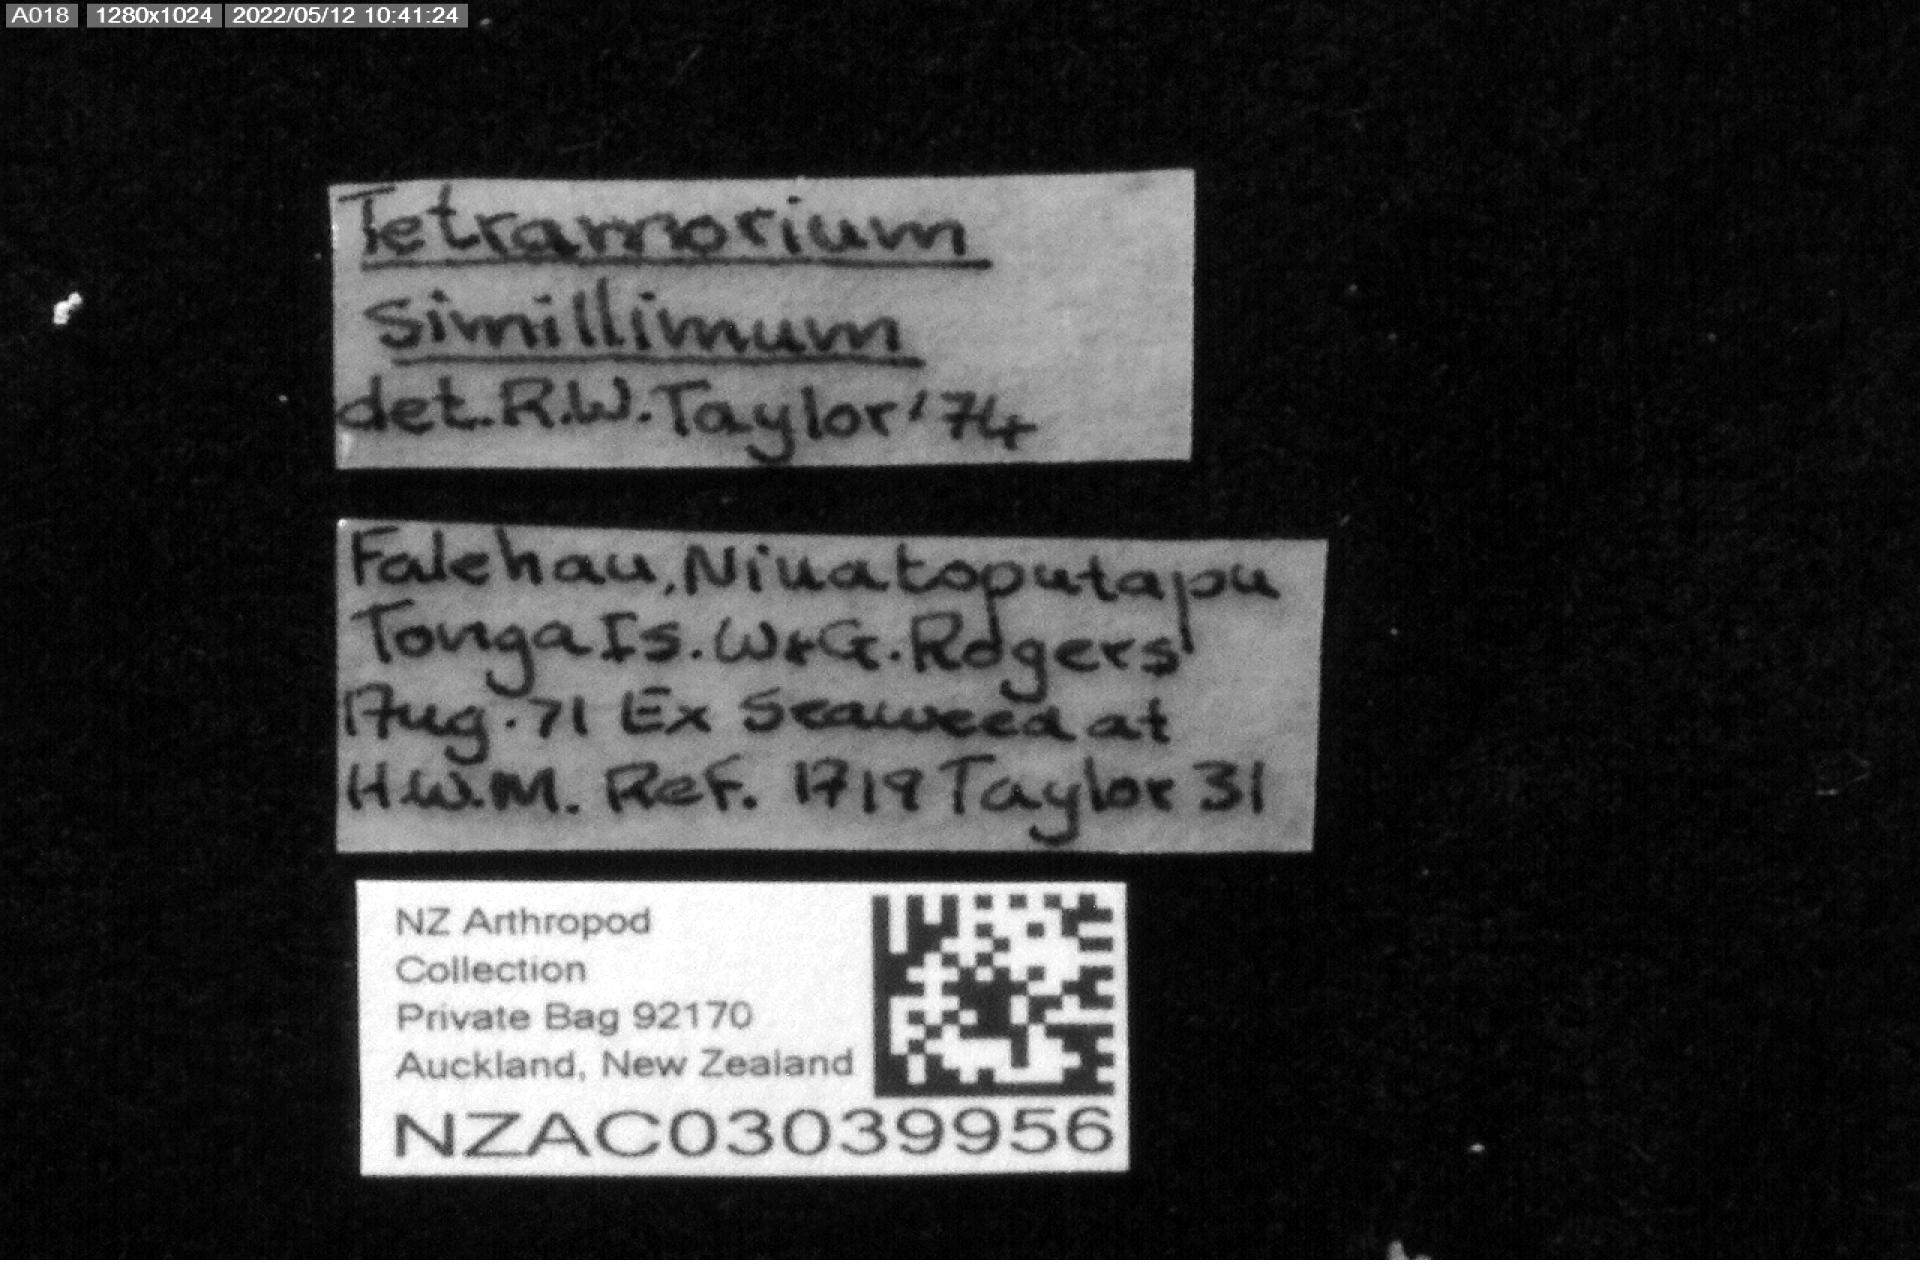 A018 1280x1024 2022/05/12 10:41:24
Tetramorium
simillimum
det. R.W. Taylor '74
Falehau, Niuatoputapu
Tonga Is. W&G. Rogers
17 Aug. 71 Ex Seaweed at
H.W.M. Ref. 1719 Taylor 31
NZ Arthropod
Collection
Private Bag 92170
Auckland, New Zealand
NZAC03039956